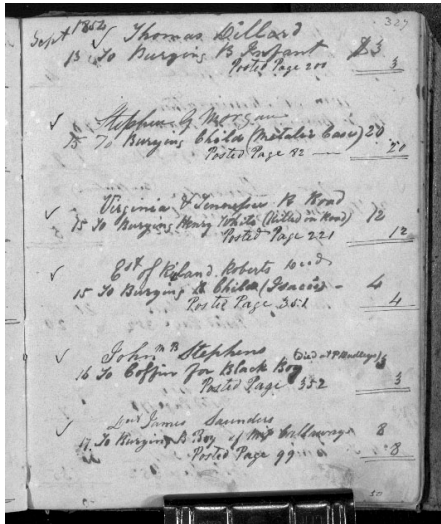 327
Sept 1854 √ Thomas Dillard
13 To Burying B Infant $3
Posted Page 200 3
√ Stephen G Morgan
15 To Burying Child (Metalic Case) 20
Posted Page 82 — 20
√ Virginia & Tennessee R Road
15 To Burying Henry White (Killed on Road) 12
Posted Page 221 12
√ Est of Roberts
15 To Burying B Child (Isaacs) - 4
Posted Page 351 4
√ John Stephens
16 To Coffin for Black Boy (Died at 3
Posted Page 352 3
√ James Saunders
17 To Burying B Boy of 8
Posted Page 99 8